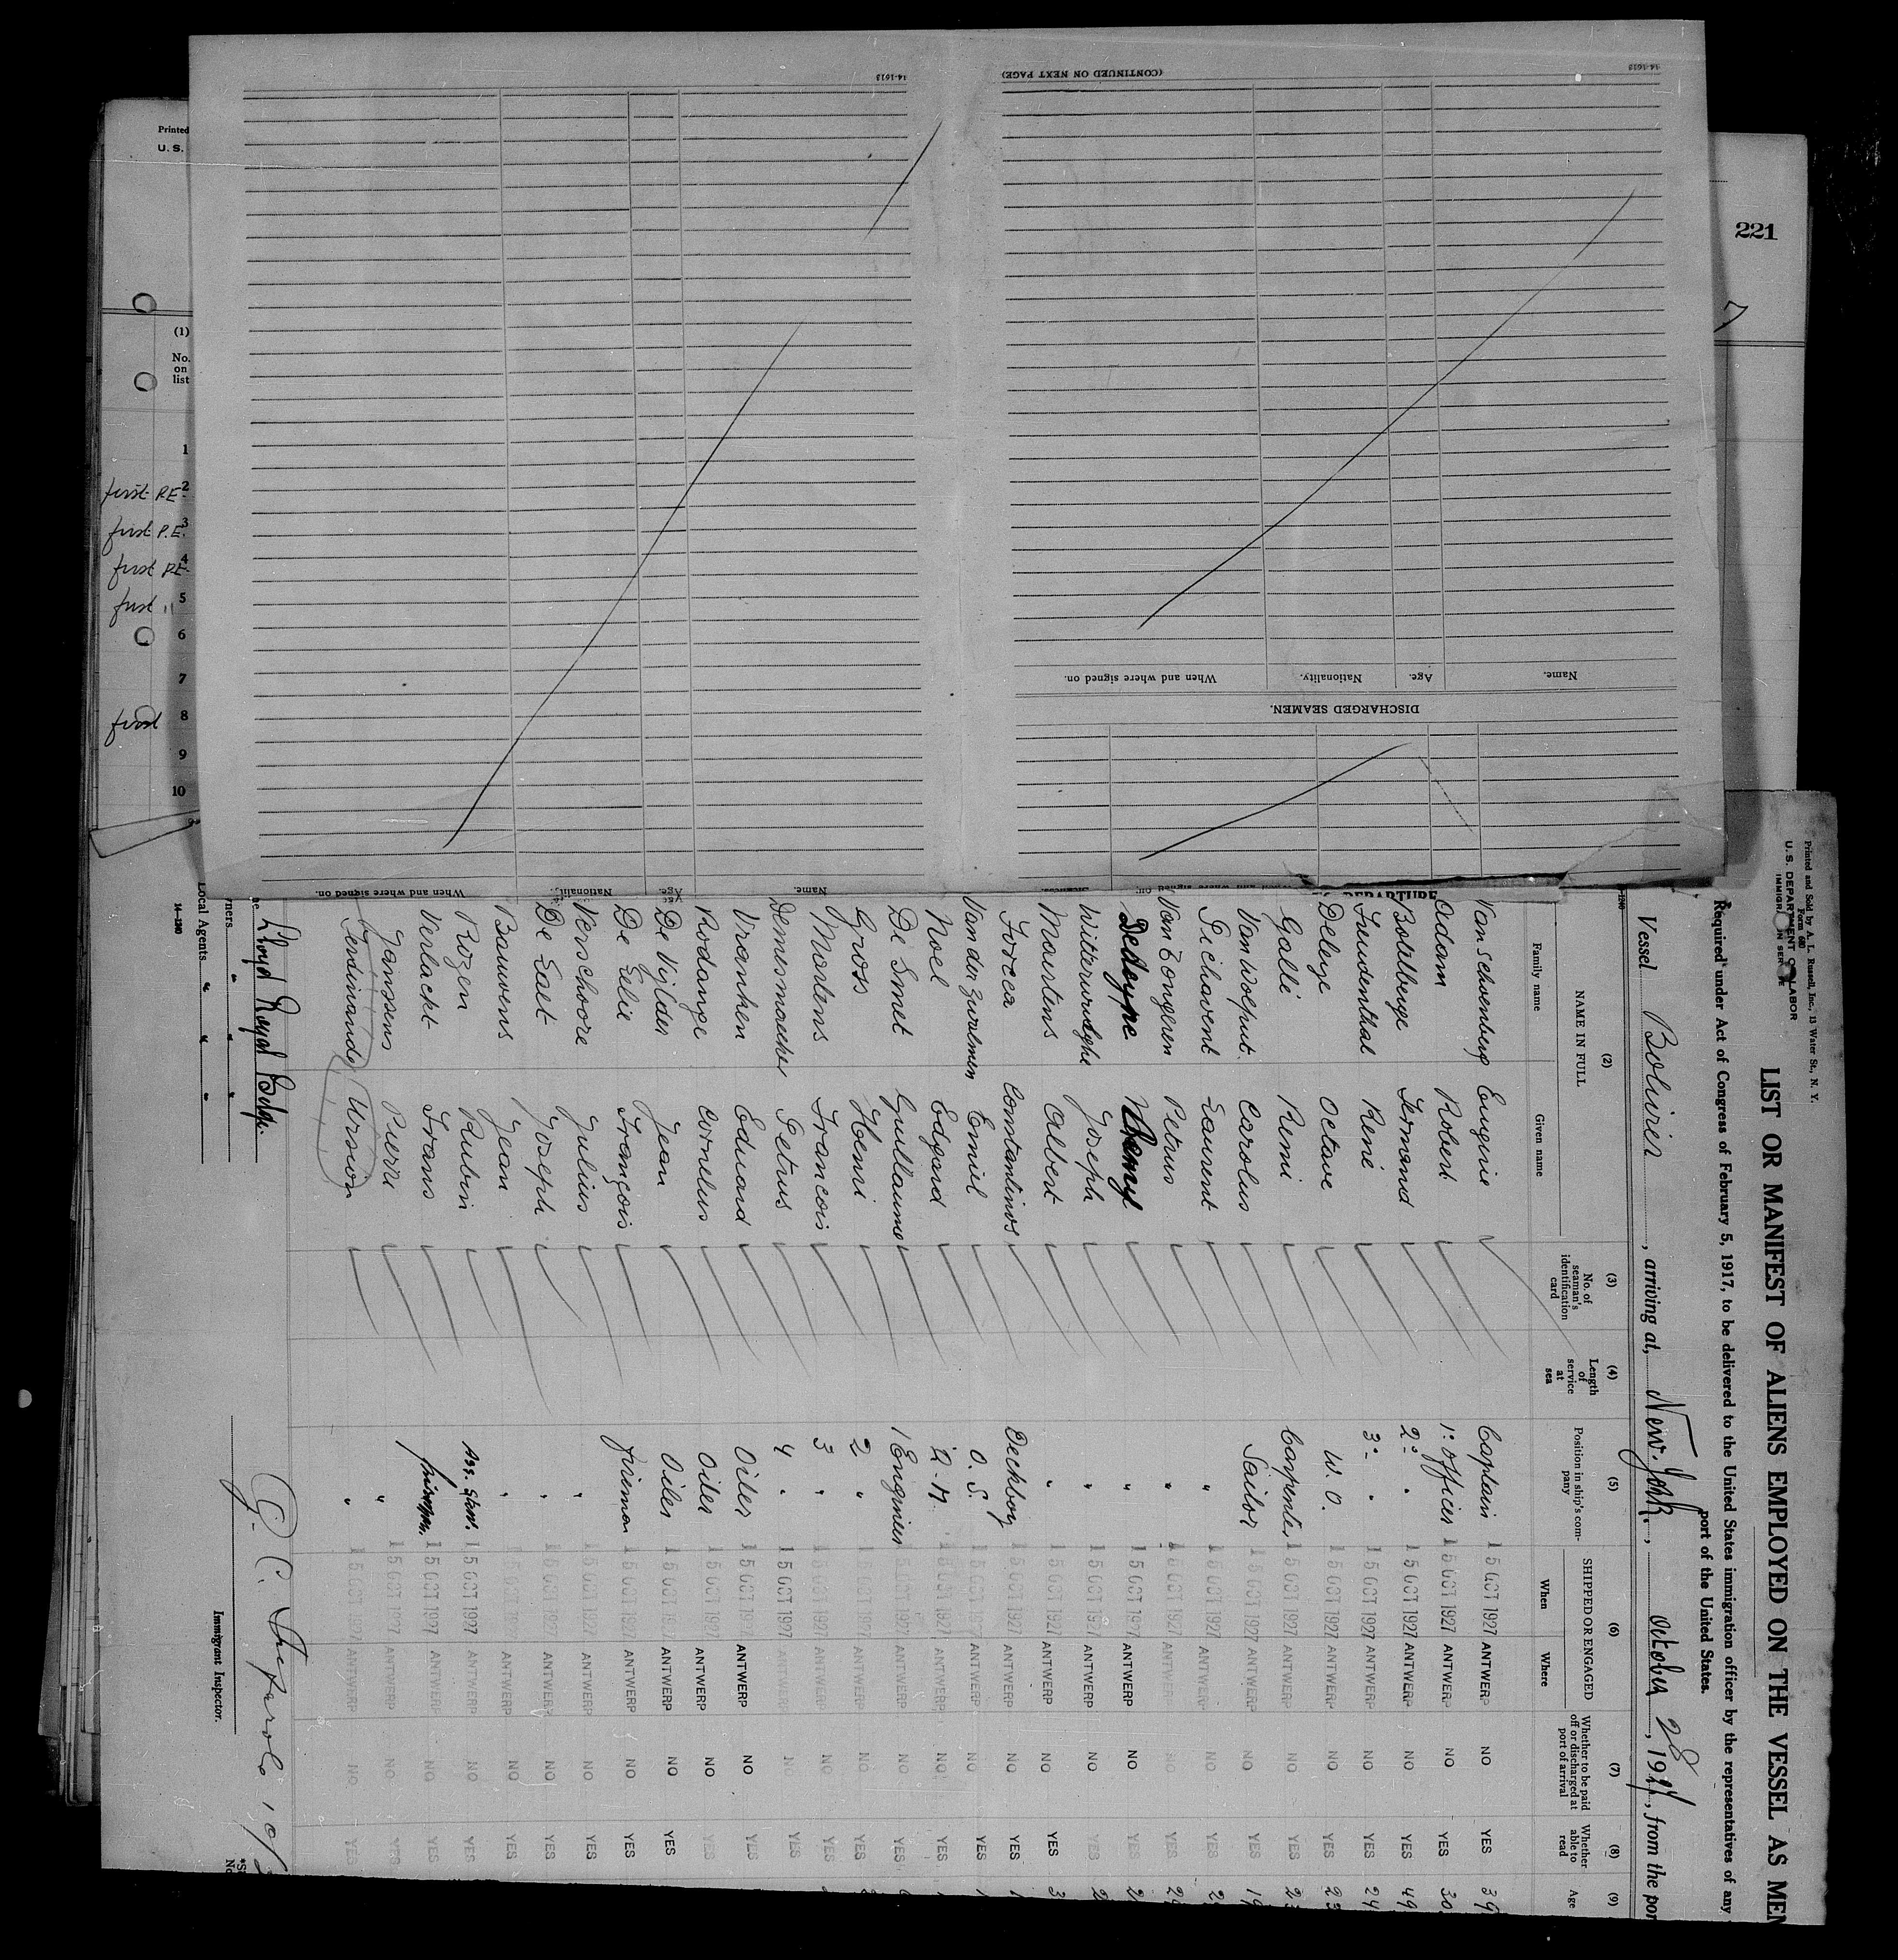 14-1613
(CONTINUED ON NEXT PAGE)
14-1613
Printed
U. S.
221
7
(1)
No.
on
list
1
first P.E. 2
first P.E. 3
first P.E. 4
first " 5
6
7
first 8
9
10
Name.
Age.
Nationality.
When and where signed on.
DISCHARGED SEAMEN.
Name.
Age.
When and where signed on.
DEPARTURE
Printed and Sold by A. L. Russell, Inc., 13 Water St., N. Y.
Form 680
U. S. DEPARTMENT OF LABOR
IMMIGRATION SERVICE
LIST OR MANIFEST OF ALIENS EMPLOYED ON THE VESSEL AS MEM
Required under Act of Congress of February 5, 1917, to be delivered to the United States immigration officer by the representatives of any
port of the United States.
Vessel Bolivier, arriving at, New-York., October 28, 1927, from the por
(2) (3) (4) (5) (6) (7) (8) (9)
NAME IN FULL No. of seaman's identification card Length of service at sea Position in ship's company SHIPPED OR ENGAGED Whether to be paid off or discharged at port of arrival Whether able to read Age
Family name Given name When Where
Van Schoenberg Eugène Captain 15 OCT 1927 ANTWERP NO YES 39
Adam Robert 1: officer 15 OCT 1927 ANTWERP NO YES 30
Bollelberge Fernand 2: " 15 OCT 1927 ANTWERP NO YES 49
Freudenthal René 3: " 15 OCT 1927 ANTWERP NO YES 24
Deleize Octave W. O. 15 OCT 1927 ANTWERP NO YES 23
Galle Remi Carpenter 15 OCT 1927 ANTWERP NO YES 2
Van Wolput Carolus Sailor 15 OCT 1927 ANTWERP NO YES 19
Pichavent Laurent " 15 OCT 1927 ANTWERP NO YES 2
Van Tongeren Petrus " 15 OCT 1927 ANTWERP NO YES 2
Dedeyne Remy " 15 OCT 1927 ANTWERP NO YES 2
Joseph " 15 OCT 1927 ANTWERP NO YES 2
Maertens Albert " 15 OCT 1927 ANTWERP NO YES 3
Constantinos Deckboy 15 OCT 1927 ANTWERP NO YES 1
Emiel O. S. 15 OCT 1927 ANTWERP NO YES 1
Noel Edgard 15 OCT 1927 ANTWERP NO YES
De Smet Guillaume 1 Engineer 15 OCT 1927 ANTWERP NO YES
Gross Henri 2 " 15 OCT 1927 ANTWERP NO YES
Martens Francois 3 " 15 OCT 1927 ANTWERP NO YES
Demesmaeker Petrus 4 " 15 OCT 1927 ANTWERP NO YES
Vranken Eduard Oiler 15 OCT 1927 ANTWERP NO YES
Rodange Cornelus Oiler 15 OCT 1927 ANTWERP NO YES
De Vylder Jean Oiler 15 OCT 1927 ANTWERP NO YES
De Lelie François fireman 15 OCT 1927 ANTWERP NO YES
Verschoore Julius " 15 OCT 1927 ANTWERP NO YES
De Laet Joseph " 15 OCT 1927 ANTWERP NO YES
Bauwens Jean " 15 OCT 1927 ANTWERP NO YES
Rozen Rubin Ass. Stew. 15 OCT 1927 ANTWERP NO YES
Verlackt Frans fireman 15 OCT 1927 ANTWERP NO YES
Janssens Pierre " 15 OCT 1927 ANTWERP NO YES
Ferdinandy Ursion " 15 OCT 1927 ANTWERP NO YES
Lloyd Royal Belge.
Owners " " "
Local Agents " " "
14-1240
10/2
Immigrant Inspector.